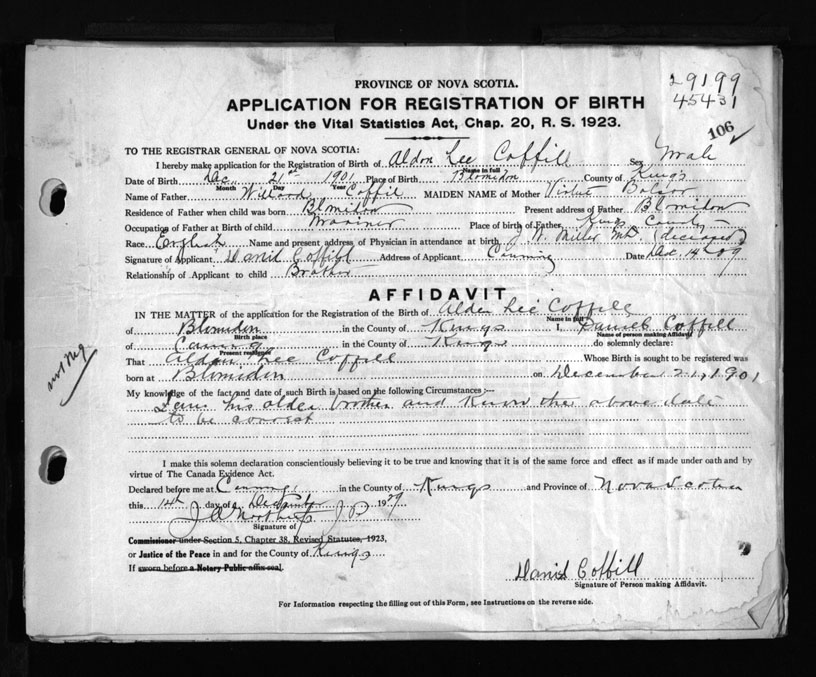 29199
45431
106
PROVINCE OF NOVA SCOTIA.
APPLICATION FOR REGISTRATION OF BIRTH
Under the Vital Statistics Act, Chap. 20, R. S. 1923.
TO THE REGISTRAR GENERAL OF NOVA SCOTIA:
I hereby make application for the Registration of Birth of Aldon Lee Coffill Sex Male
Name in full
Date of Birth Dec. 21st 1901 Place of Birth Blomidon County of Kings
Month Day Year
Name of Father Willard Coffil MAIDEN NAME of Mother
Residence of Father when child was born Blomidon Present address of Father Blomidon
Occupation of Father at Birth of child Mariner Place of birth of Father Kings County
Race English Name and present address of Physician in attendance at birth J. W. Miller M.D. (deceased)
Signature of Applicant Daniel Coffill Address of Applicant Canning Date Dec. 14
Relationship of Applicant to child Brother
AFFIDAVIT
IN THE MATTER of the application for the Registration of the Birth of Alden Lee Coffill
Name in full
of Blomidon in the County of Kings I, Daniel Coffill
Birth place Name of person making Affidavit
of Canning in the County of Kings do solemnly declare:
Present residence
That Aldon Lee Coffill Whose Birth is sought to be registered was
born at Blomidon on December 21, 1901
My knowledge of the fact and date of such Birth is based on the following Circumstances:—
I am his older brother and know the above date
to be correct
I make this solemn declaration conscientiously believing it to be true and knowing that it is of the same force and effect as if made under oath and by
virtue of The Canada Evidence Act.
Declared before me at Canning in the County of Kings and Province of Nova Scotia
this 14th day of December 1929
J.P.
Signature of
Commissioner under Section 5, Chapter 38, Revised Statutes, 1923,
or Justice of the Peace in and for the County of Kings
If sworn before a Notary Public affix seal.
Daniel Coffill
Signature of Person making Affidavit.
For Information respecting the filling out of this Form, see Instructions on the reverse side.